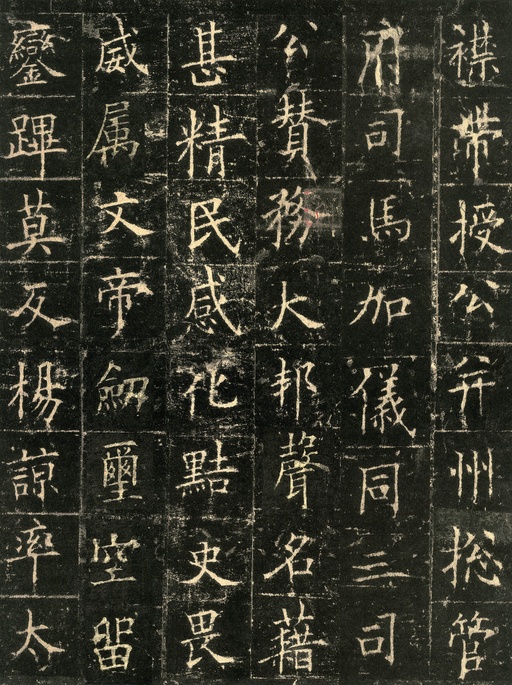 襟帶授公并州捴管
府司馬加儀同三司
公贊務大邦聲名藉
甚精民感化黠史畏
威属文帝劒璽空留
鑾蹕莫反楊諒率太